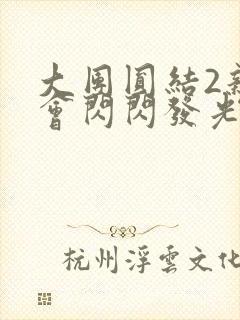 大團圓結2
會閃閃發光
杭州浮雲文化